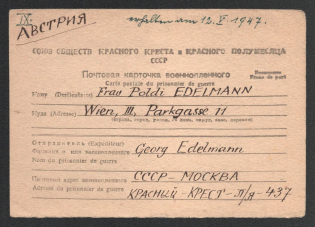 IX.
АВСТРИЯ
erhalten am 12.X.1947.
СОЮЗ ОБЩЕСТВ КРАСНОГО КРЕСТА и КРАСНОГО ПОЛУМЕСЯЦА
СССР
Почтовая карточка военнопленного
Carte postale du prisonnier de guerre
Кому (Destinataire) Frau Poldi EDELMANN
Куда (Adresse) Wien, III, Parkgasse 11
Отправитель (Expéditeur)
Фамилия и имя военнопленного Georg Edelmann
Nom du prisonnier de guerre
Почтовый адрес военнопленного СССР-МОСКВА
Adresse du prisonnier de guerre КРАСНЫЙ-КРЕСТ-П/Я-437